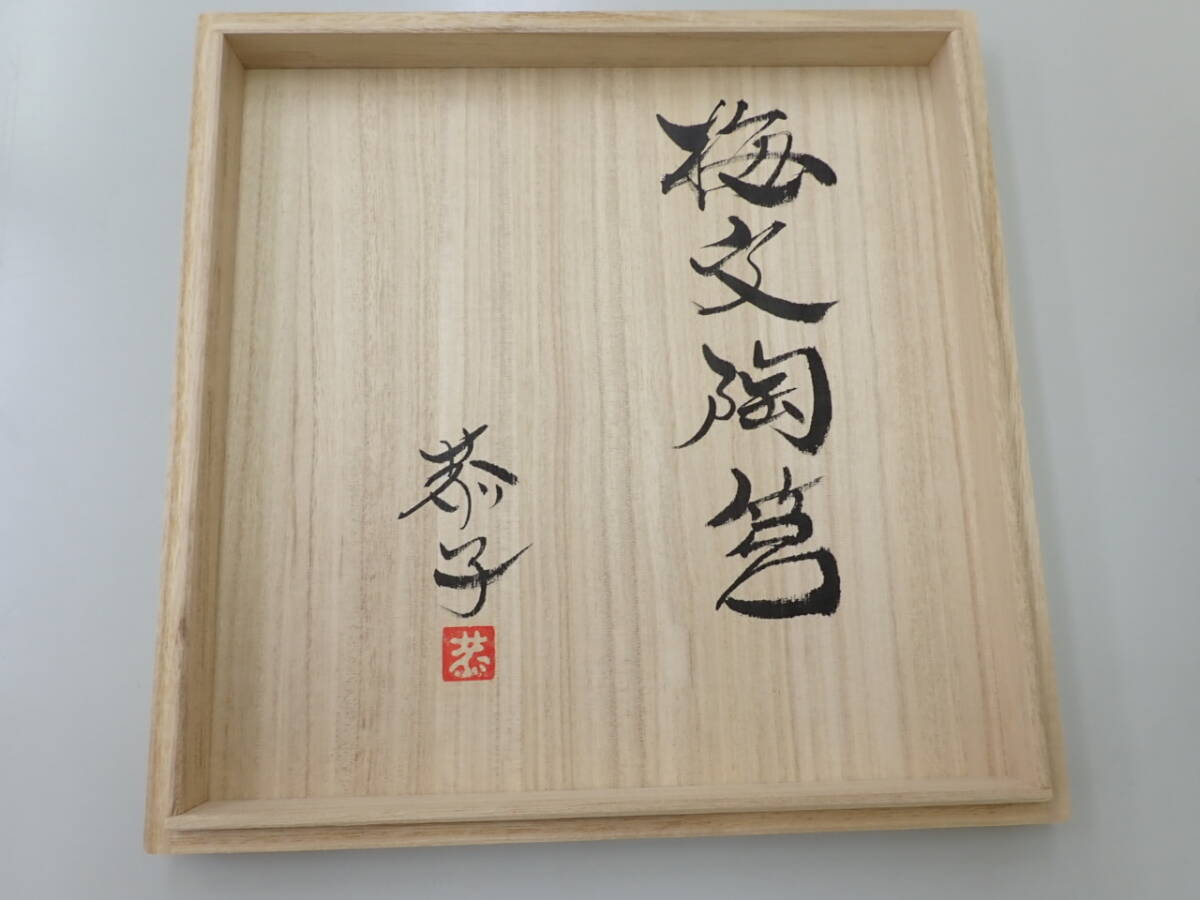 梅文陶筥
恭子
恭